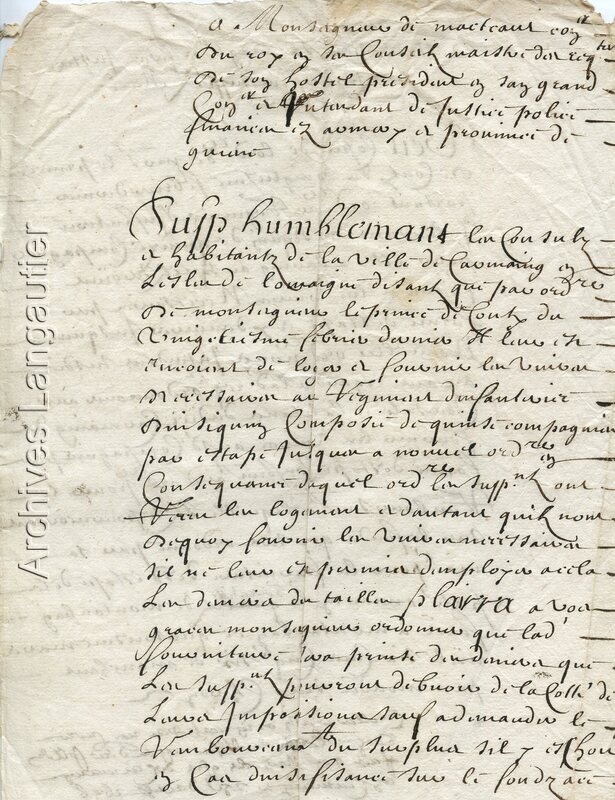 A Monseigneur de machaut con.er
Du roy en ses Conseils maistre des req.tes
De son hostel president en son grand
Con.el et Intendant de Justice police
finances ez armees et province de
guiene
Supp humblemant les Consulz
et habitantz de la ville de Carmaing en
de lomaigne disant que par ord.re
De monseigneur le prince de Conty du
Vingtiesme febrier dernier Il leur est
enjoint de loger et fournir les vivres
necessaires au Regiment dinfanterie
Composée de quinse compagnies
par estape jusques a nouvel ord.re en
Consequance duquel ord.re les supp.nt ont
les logement et dautant quilz nont
Dequoy fournir les vivres necessaires
sil ne leur est permis demployer a cella
Les deniers des tailles plairra a vos
graces monseigneur ordonner que lad
fourniture sera prinse des deniers que
Les supp.nt peuvront debvoir de la Colle de
Leurs Impositions sauf a demander le
Rembourcem.t du surplus sil y eschoit
en Cas dinsufisance sur le
Archives Langautier